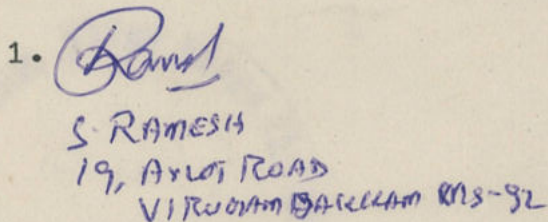 1.
S. RAMESH
19, ARCOT ROAD
VIRUGAMBAKKAM MS-92